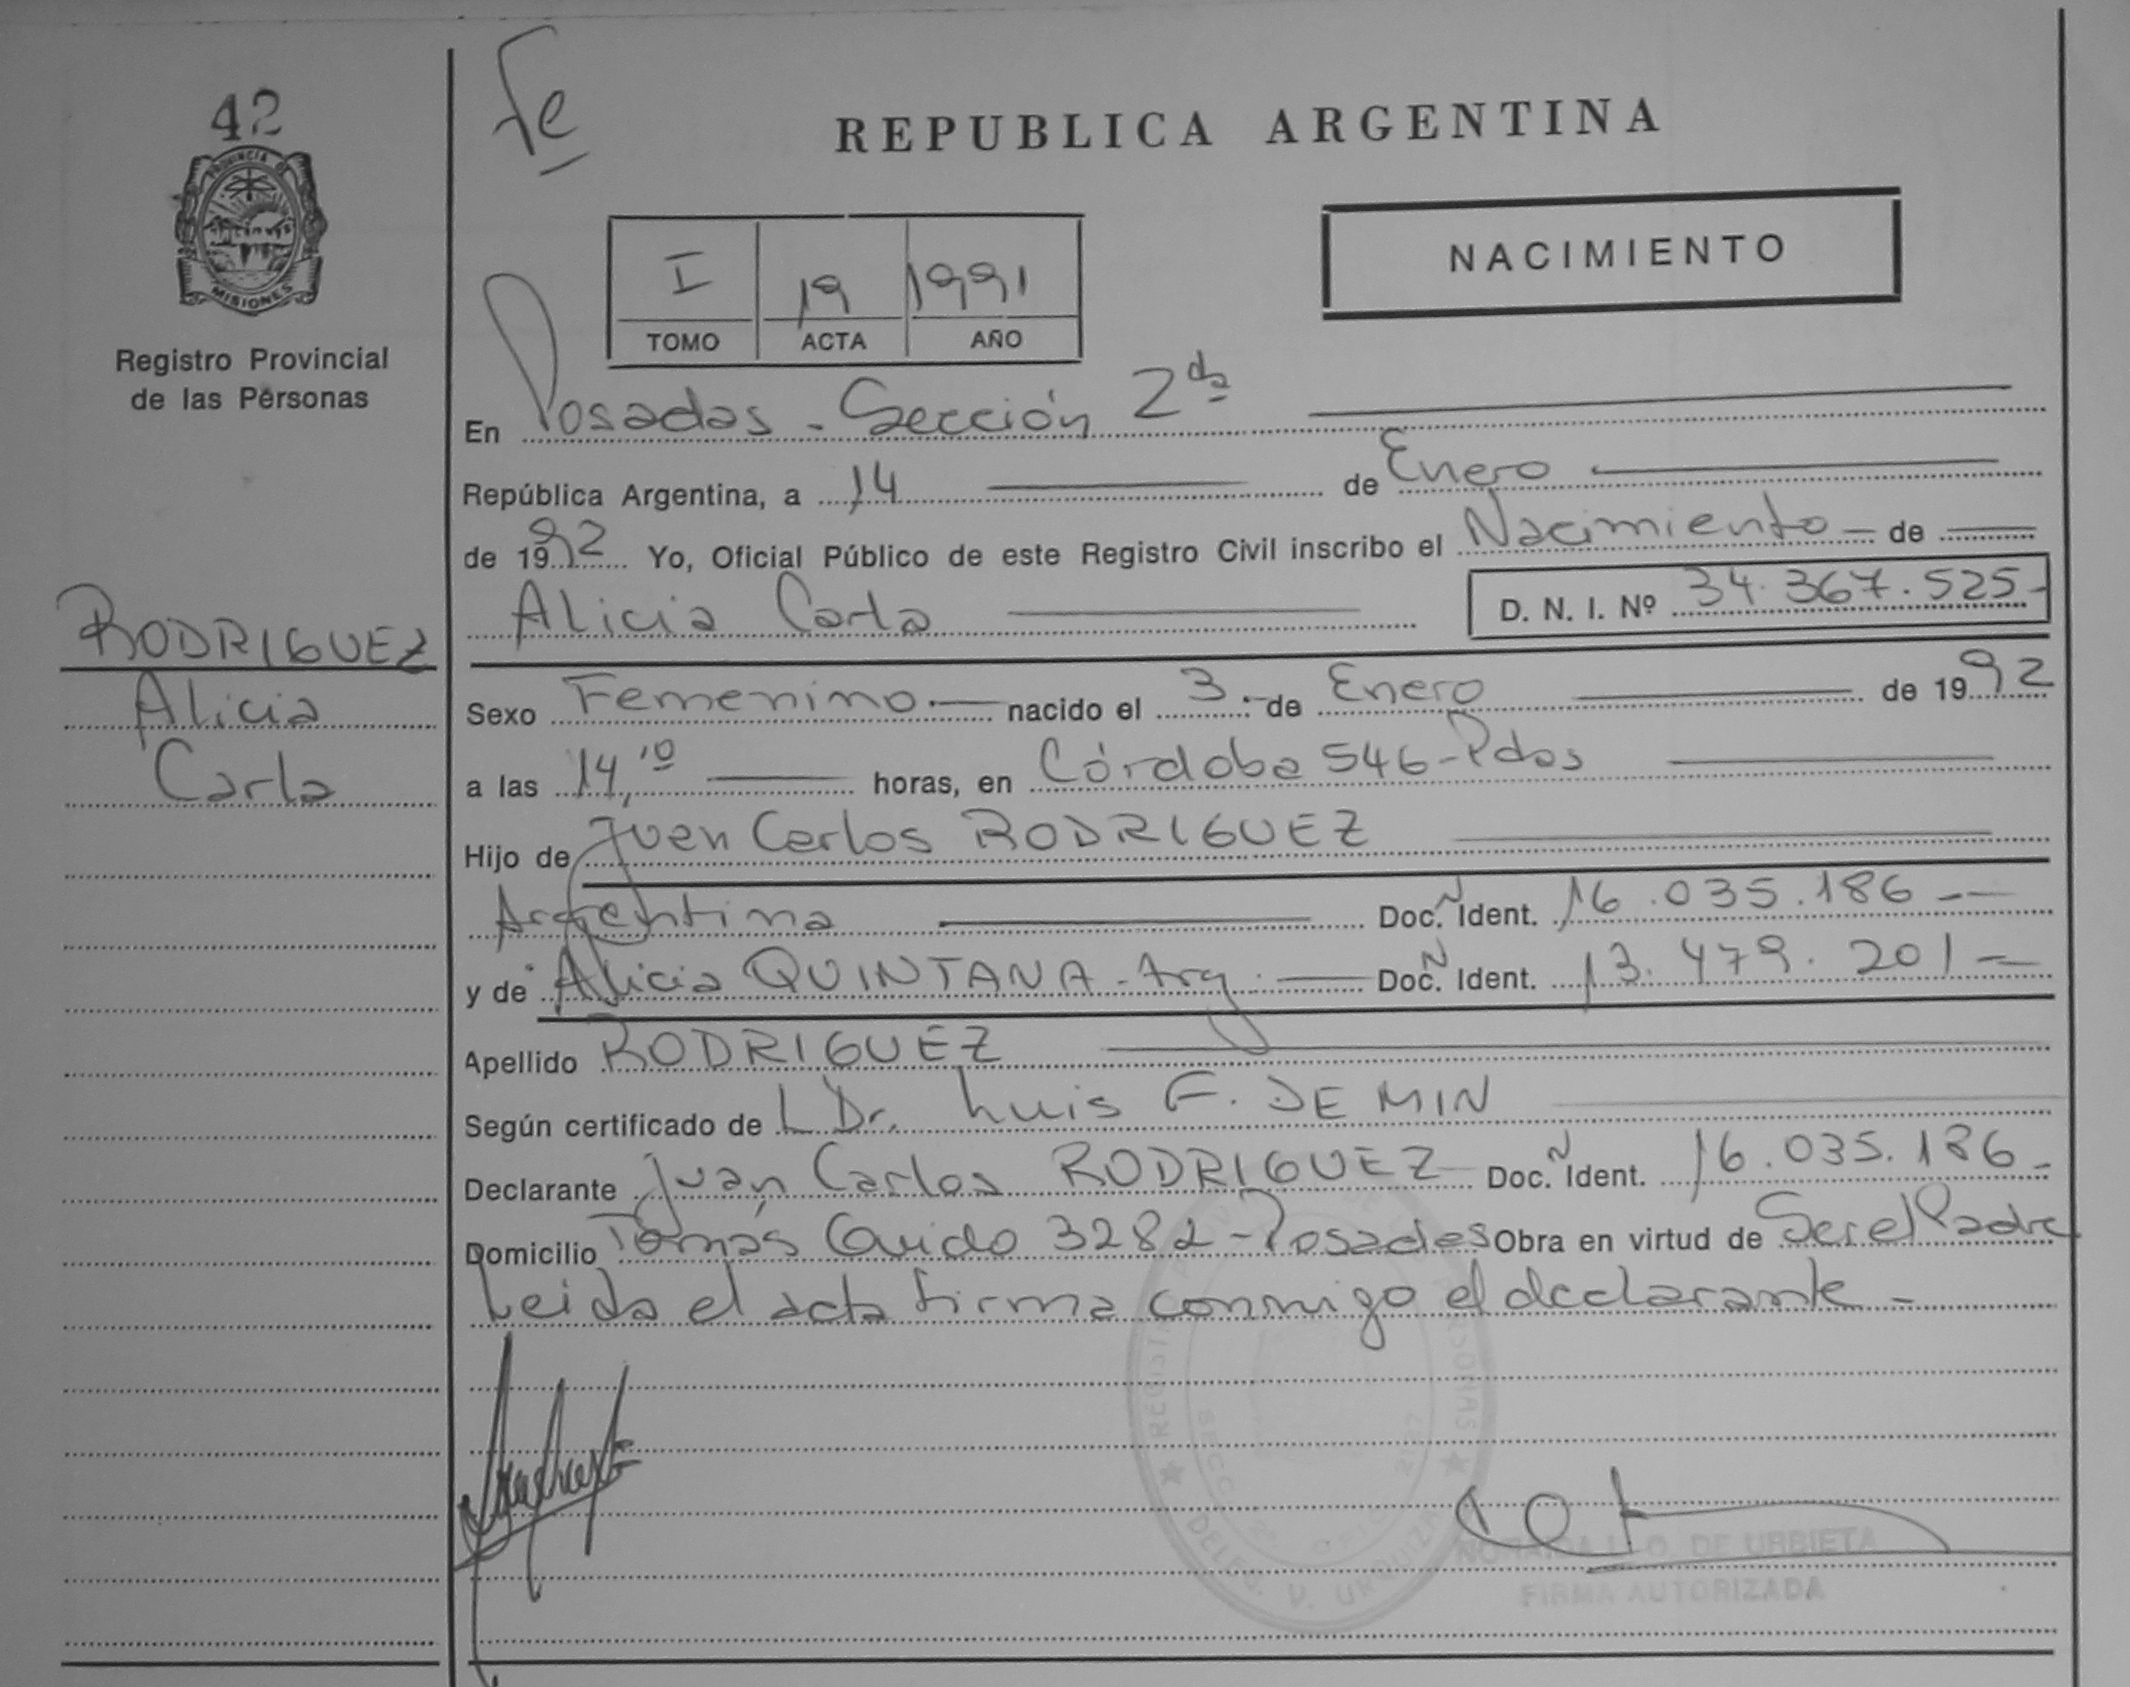 42
PROVINCIA DE
MISIONES
Registro Provincial
de las Personas
RODRIGUEZ
Alicia
Carla
Fe
REPUBLICA ARGENTINA
NACIMIENTO
I 19 1991
TOMO ACTA AÑO
En Posadas - Sección 2da
República Argentina, a 14 de Enero
de 1992 Yo, Oficial Público de este Registro Civil inscribo el Nacimiento - de
Alicia Carla D. N. I. Nº 34.367.525-
Sexo Femenino.- nacido el 3.- de Enero de 1992
a las 14,10 horas, en Córdoba 546-Pdas
Hijo de Juan Carlos RODRIGUEZ
Argentina Doc. N Ident. 16.035.186 --
y de Alicia QUINTANA - Arg. Doc. N Ident. 13.479.201 -
Apellido RODRIGUEZ
Según certificado de L Dr. Luis F. DE MIN
Declarante Juan Carlos RODRIGUEZ Doc. N Ident. 16.035.186-
Domicilio Tomás Guido 3282-Posadas Obra en virtud de Ser el Padre
Leida el acta firma conmigo el declarante -
DELEG. V. URQUIZA
O. DE URBIETA
FIRMA AUTORIZADA